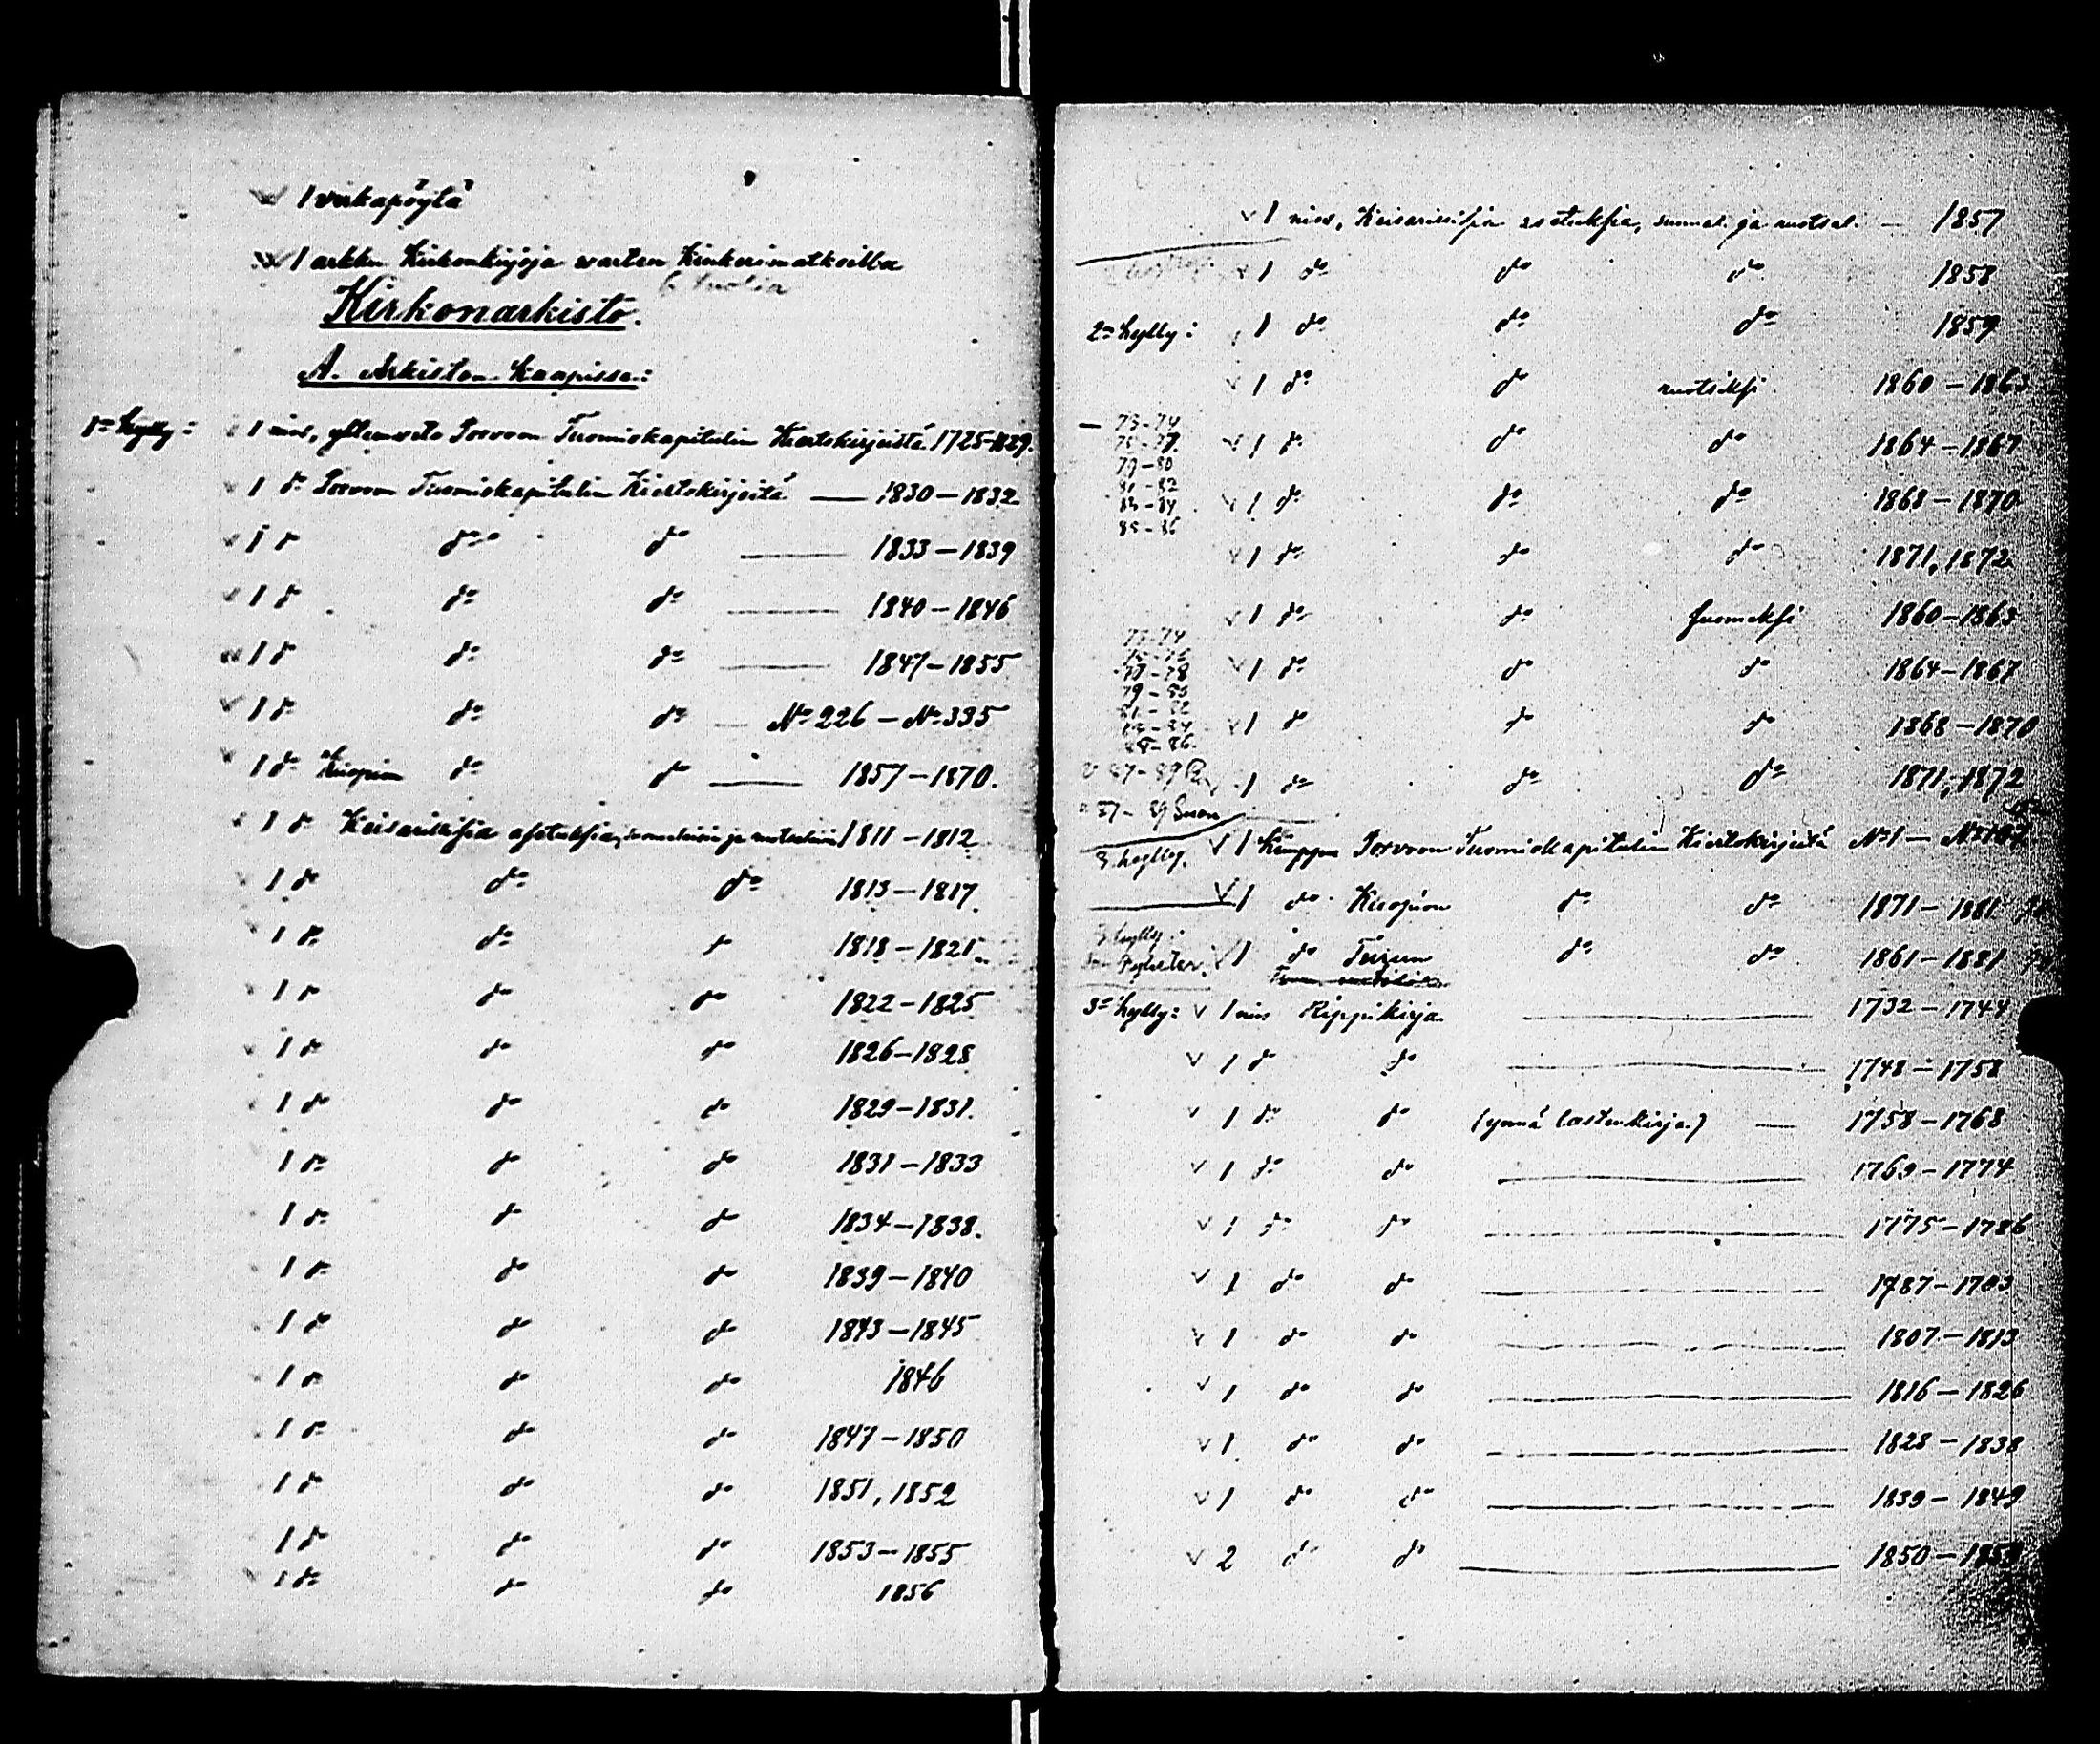 1 virkapöytä
1 arkku Kirkonkirjoja warten Kinkerimatkoilla
6 tuolia
Kirkonarkisto.
A. Arkiston kaapissa:
1:n hylly: 1 nios, yhteenveto Porvoon Tuomiokapitulin Kiertokirjeistä 1725-1829.
1 do Porvoon Tuomiokapitulin Kiertokirjeitä — 1830-1832
1 do do do — 1833-1839
1 do do do — 1840-1846
1 do do do — 1847-1855
1 do do do — No 226 - No 335
1 do Kuopion do do — 1857-1870.
1 do Keisarillisia asetuksia, suomeksi ja ruotsiksi 1811-1812
1 do do do 1813-1817
1 do do do 1818-1821
1 do do do 1822-1825
1 do do do 1826-1828
1 do do do 1829-1831.
1 do do do 1831-1833
1 do do do 1834-1838.
1 do do do 1839-1840
1 do do do 1843-1845
1 do do do 1846
1 do do do 1847-1850
1 do do do 1851, 1852
1 do do do 1853-1855
1 do do do 1856
√ 1 nios, Keisarillisia asetuksia, suomal. ja ruotsal. — 1857
√ 1 do do do 1858
2:n hylly: 1 do do do 1859
√ 1 do do ruotsiksi 1860-1863
73-74
75-77. √ 1 do do do 1864-1867
79-80
81-82
83-84 √ 1 do do do 1868-1870
85-86
√ 1 do do do 1871, 1872
√ 1 do do suomeksi 1860-1863
73-74
75-76
77-78 √ 1 do do do 1864-1867
79-80
81-82
83-84 √ 1 do do do 1868-1870
85-86.
√ 87-89 1 do do do 1871, 1872
87-89 Suom
3 hylly. √ 1 Kimppu Porvoon Tuomiokapitulin Kiertokirjeitä No 1 — No 107
√ 1 do Kuopion do do 1871-1881
3 hylly:
√ 1 do do do 1861-1881
3:s hylly: √ 1 nios Rippikirja — 1732-1744
√ 1 do do — 1748-1758
√ 1 do do (ynnä lastenkirja) — 1758-1768
√ 1 do do — 1769-1774
√ 1 do do — 1775-1786
√ 1 do do — 1787-1793
√ 1 do do — 1807-1813
√ 1 do do — 1816-1826
√ 1 do do — 1828-1838
√ 1 do do — 1839-1849
√ 2 do do — 1850-1859